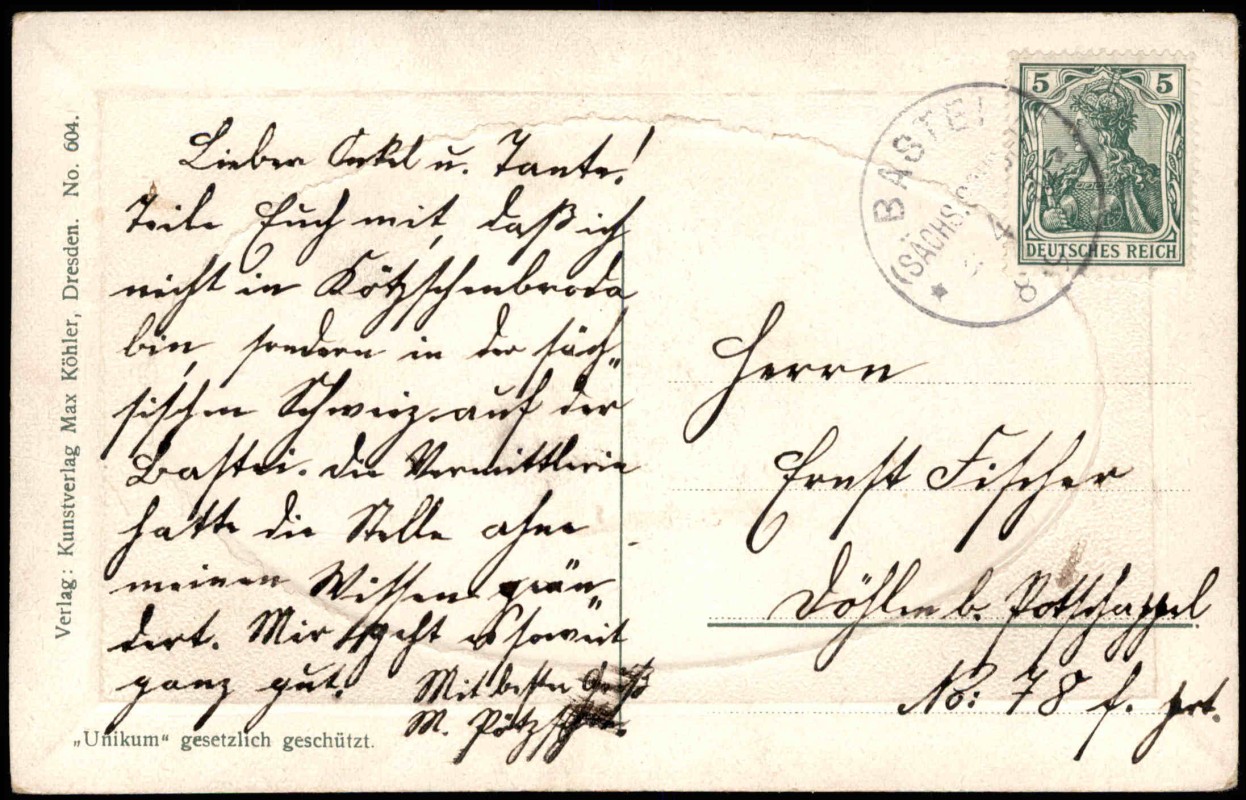 Verlag: Kunstverlag Max Köhler, Dresden. No. 604.
Lieber Onkel u. Tante!
Teile Euch mit, daß ich
nicht in Kötzschenbroda
bin, sondern in der säch„
sischen Schweiz auf der
Bastei. Die Vermittlerin
hatte die Stelle ohne
meinen Wissen geän„
dert. Mir geht es soweit
ganz gut. Mit besten Gruß
M.
„Unikum“ gesetzlich geschützt.
BASTEI
(SÄCHS.
4
8
5 5
DEUTSCHES REICH
Herrn
Ernst Fischer
Döhlen b. Potschappel
No: 78 f. prt.